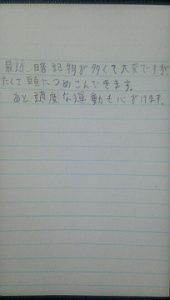 最近 暗記物が多くて大変ですが
たくて頭につめこんできます。
あと適度な運動も心がけます。